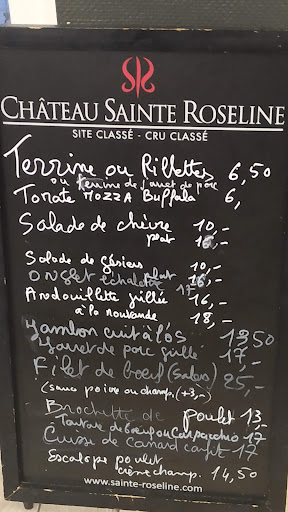 CHÂTEAU SAINTE ROSELINE
SITE CLASSÉ - CRU CLASSÉ
Terrine ou Rillettes 6,50
ou terrine de museau de porc
Tomate Mozza Buffala 6,-
Salade de chèvre 10,-
plat 16,-
Salade de gésiers 10,-
plat 16,-
Onglet échalote 17,-
Andouillette grillée 16,-
à la normande 18,-
Jambon cuit à l'os 13,50
Jarret de porc grillé 17,-
Filet de boeuf (salers) 25,-
(sauce poivre ou champ. (+3,-)
Brochette de poulet 13,-
Tartare de boeuf ou Carpaccio 17
Cuisse de Canard confit 17
Escalope poulet
crème champ. 14,50
www.sainte-roseline.com